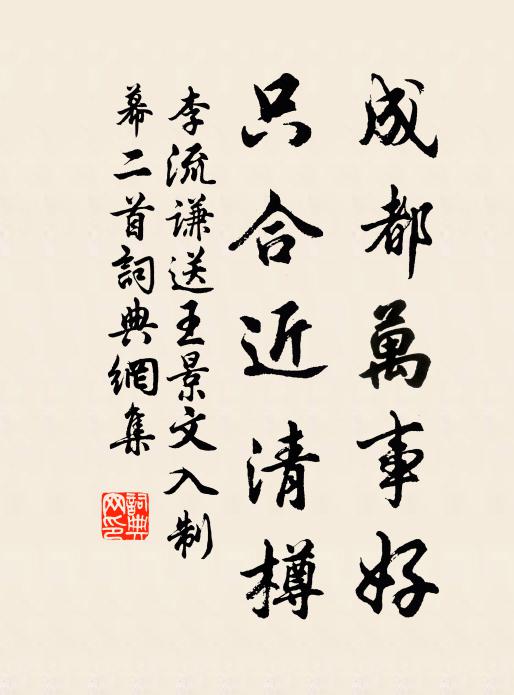 成都萬事好
只合近清樽
李流謙送王景文入制
幕二首詞典網集
詞典
网印